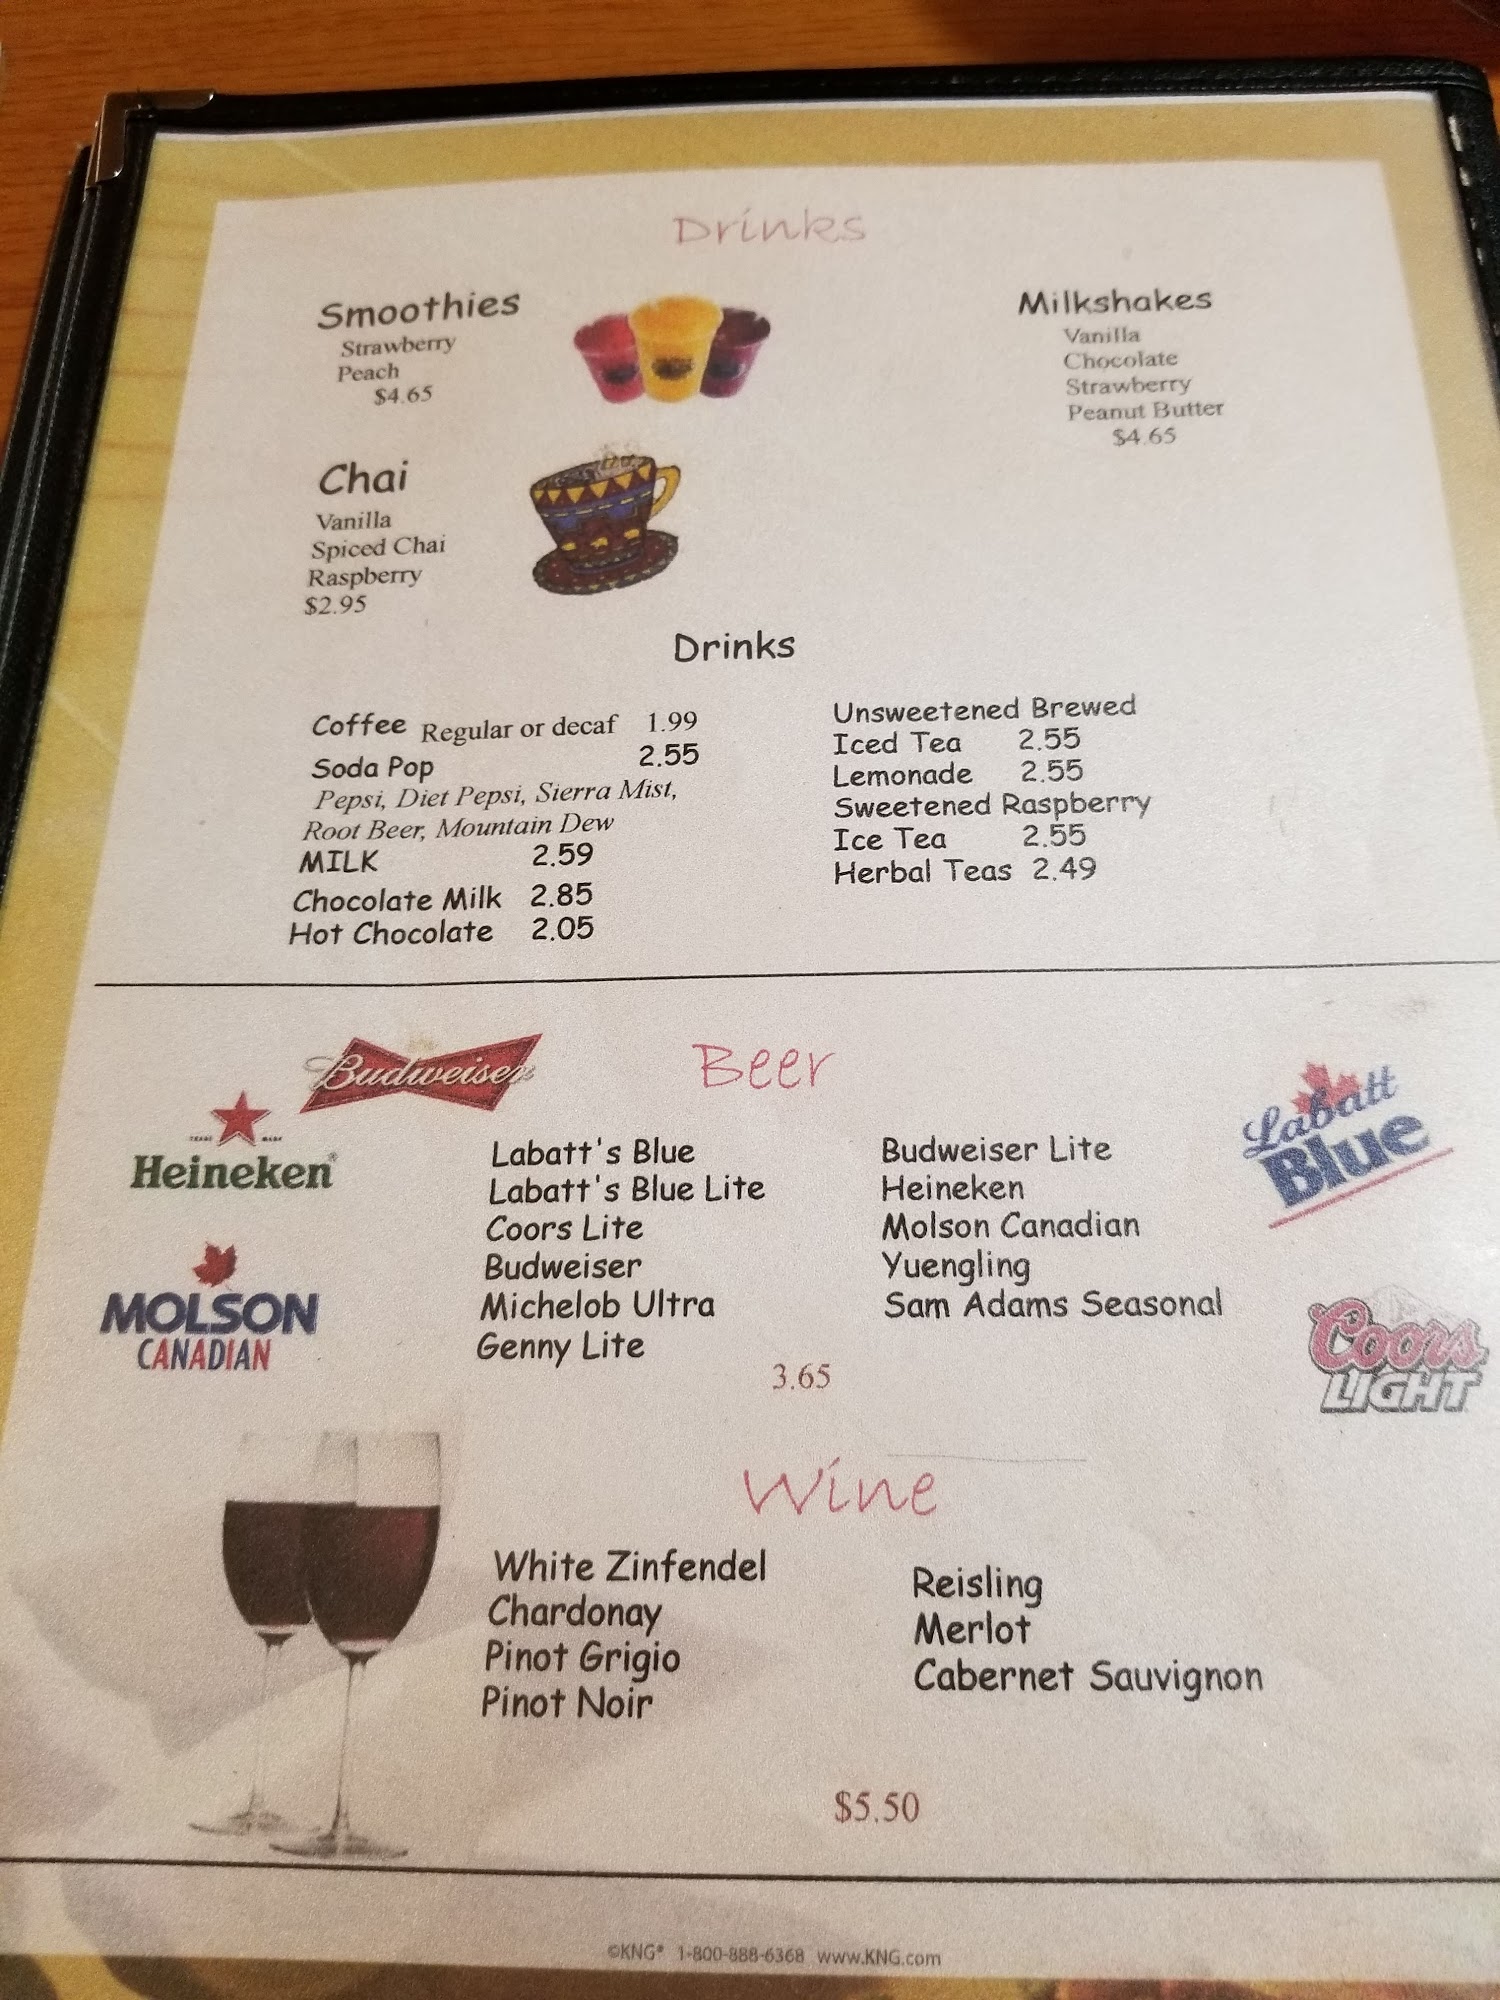 Drinks
Smoothies
Strawberry
Peach
$4.65
Milkshakes
Vanilla
Chocolate
Strawberry
Peanut Butter
$4.65
Chai
Vanilla
Spiced Chai
Raspberry
$2.95
Drinks
Coffee Regular or decaf 1.99
Soda Pop 2.55
Pepsi, Diet Pepsi, Sierra Mist,
Root Beer, Mountain Dew
MILK 2.59
Chocolate Milk 2.85
Hot Chocolate 2.05
Unsweetened Brewed
Iced Tea 2.55
Lemonade 2.55
Sweetened Raspberry
Ice Tea 2.55
Herbal Teas 2.49
Beer
Budweiser
TRADE MARK
Heineken®
MOLSON
CANADIAN
Labatt's Blue
Labatt's Blue Lite
Coors Lite
Budweiser
Michelob Ultra
Genny Lite
Budweiser Lite
Heineken
Molson Canadian
Yuengling
Sam Adams Seasonal
3.65
Labatt
Blue
Coors
LIGHT
Wine
White Zinfendel
Chardonay
Pinot Grigio
Pinot Noir
Reisling
Merlot
Cabernet Sauvignon
$5.50
©KNG® 1-800-888-6368 www.KNG.com